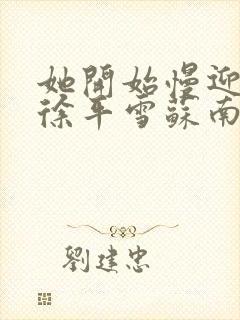 她開始慢迎
徐平雪蘇南
劉建忠